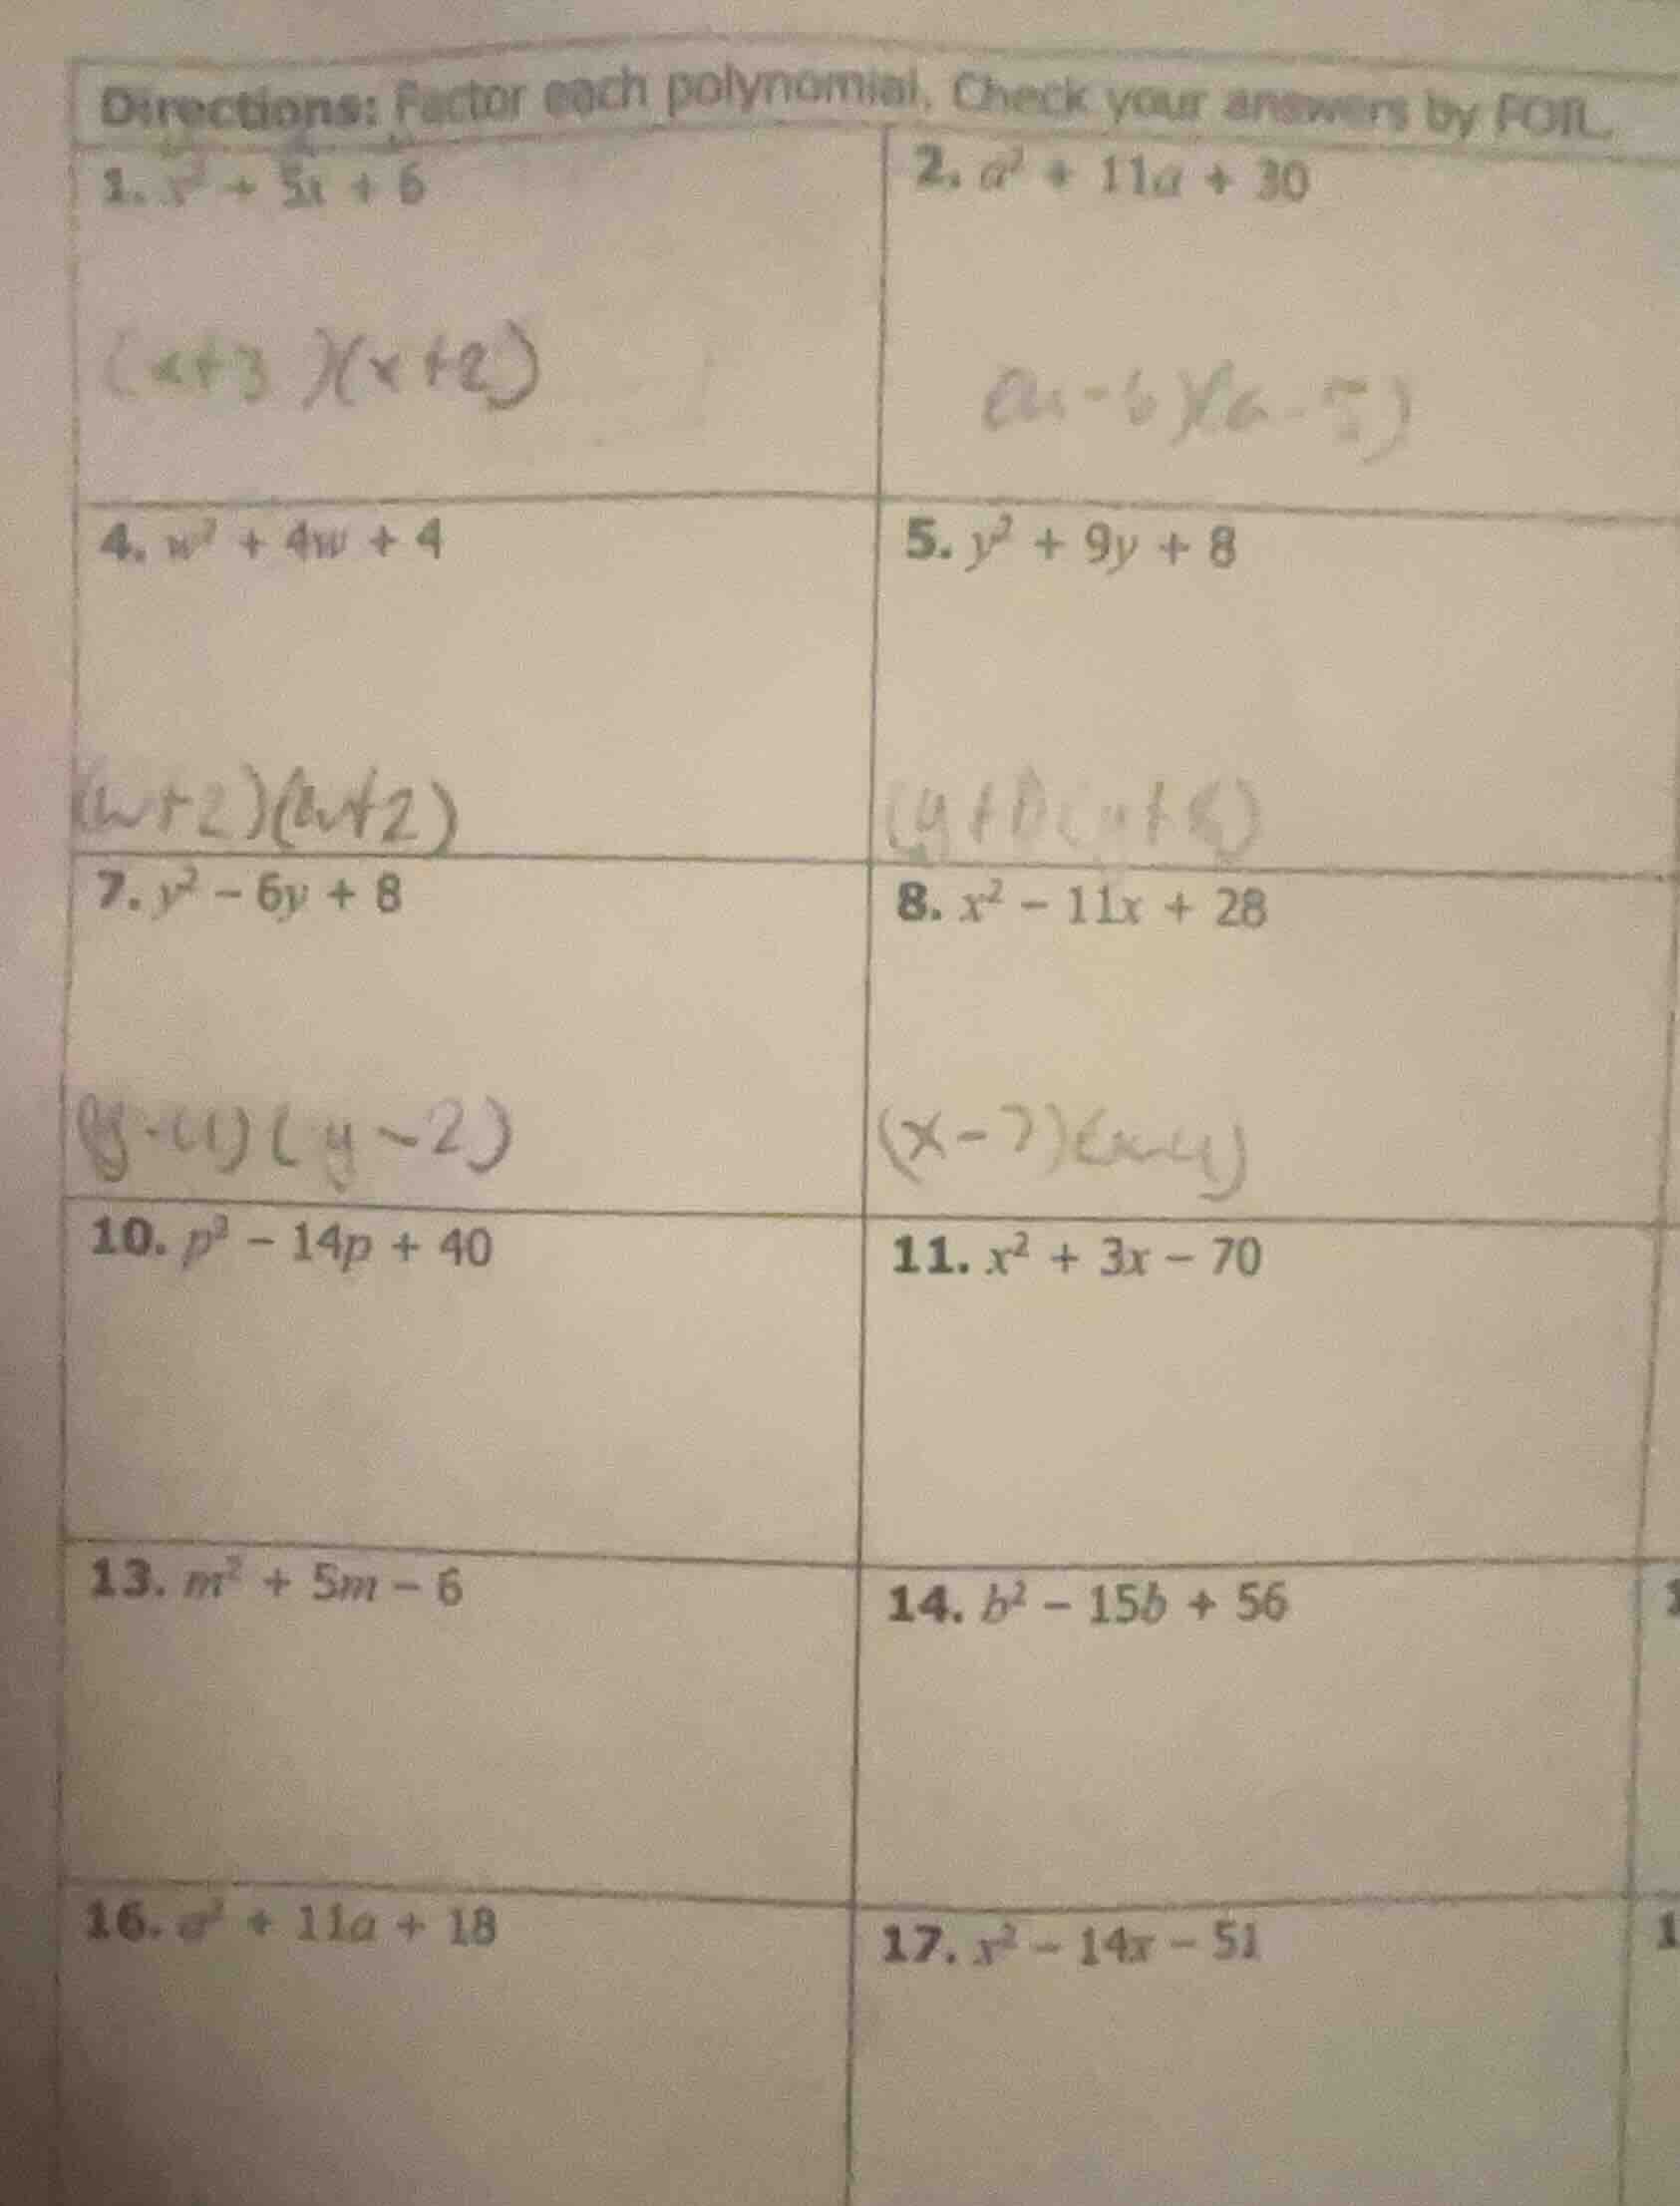 Directions: Factor each polynomial. Check your answers by FOIL.
1. x² + 5x + 6
2. a² + 11a + 30
(x+3)(x+2)
(a-6)(a-5)
4. w² + 4w + 4
5. y² + 9y + 8
(w+2)(w+2)
(y+1)(y+8)
7. y² - 6y + 8
8. x² - 11x + 28
(y-4)(y-2)
(x-7)(x-4)
10. p² - 14p + 40
11. x² + 3x - 70
13. m² + 5m - 6
14. b² - 15b + 56
16. a² + 11a + 18
17. x² - 14x - 51